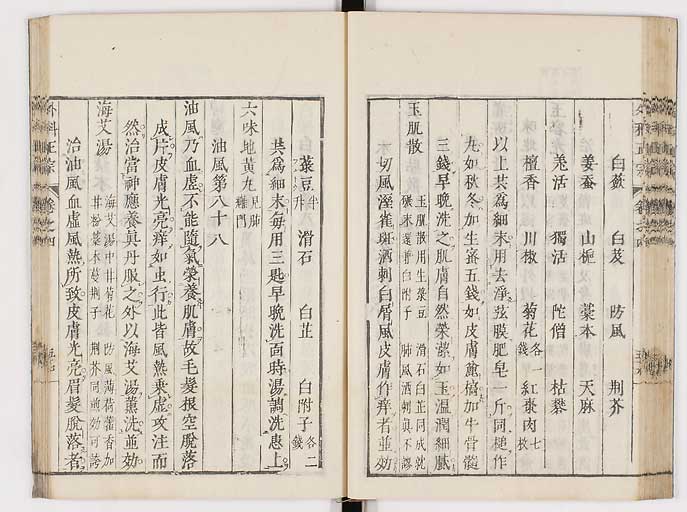 白蘞　白芨　防風　荆芥
姜蚕　山梔　藁本　天麻
羗活　獨活　陀僧　枯礬
檀香　川椒　菊花各一錢　紅棗肉七枚
以上共爲細末用去淨弦膜肥皂一斤同槌作
丸如秋冬加生蜜五錢如皮膚
三錢早晩洗之肌膚自然榮潔如玉温潤細膩
玉肌散　玉肌散用生菉豆　滑石白芷同成就
碾末還將白附子　肺風酒刺真不謬
一切風濕雀斑酒刺白屑風皮膚作痒者並効
菉豆半升　滑石　白芷　白附子各二錢
共爲細末毎用三匙早晩洗面時湯調洗患上
六味地黃丸見肺癰門
油風第八十八
油風乃血虚不能隨氣榮養肌膚故毛髪根空脫落
成片皮膚光亮痒如虫行此皆風熱乗虚攻注而
然治當神應養真丹服之外以海艾湯薰洗並効
海艾湯　海艾湯中甘菊花　防風薄荷藿香加
甘松藁本蔓荆子　荆芥同煎効可誇
治油風血虚風熱所致皮膚光亮眉髪脫落者
外科正宗　卷之四